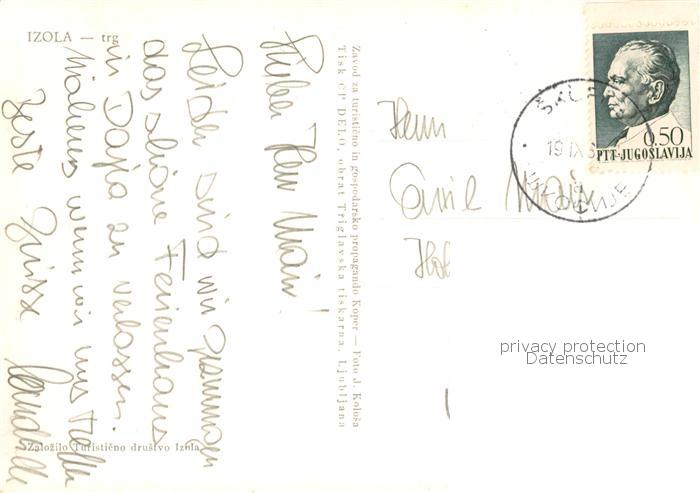 IZOLA — trg
Lieber Herr Mair!
Leider sind wir gezwungen
das schöne Ferienhaus
in Dajla zu verlassen.
Näheres wenn wir uns treffen
Beste Grüsse
Založilo Turistično društvo Izola
Zavod za turistično in gospodarsko propagando Koper — Foto J. Kološa
Tisk ČP DELO, obrat Triglavska tiskarna, Ljubljana
Herrn
Emil Mair
0.50
PTT-JUGOSLAVIJA
19 IX 6
privacy protection
Datenschutz